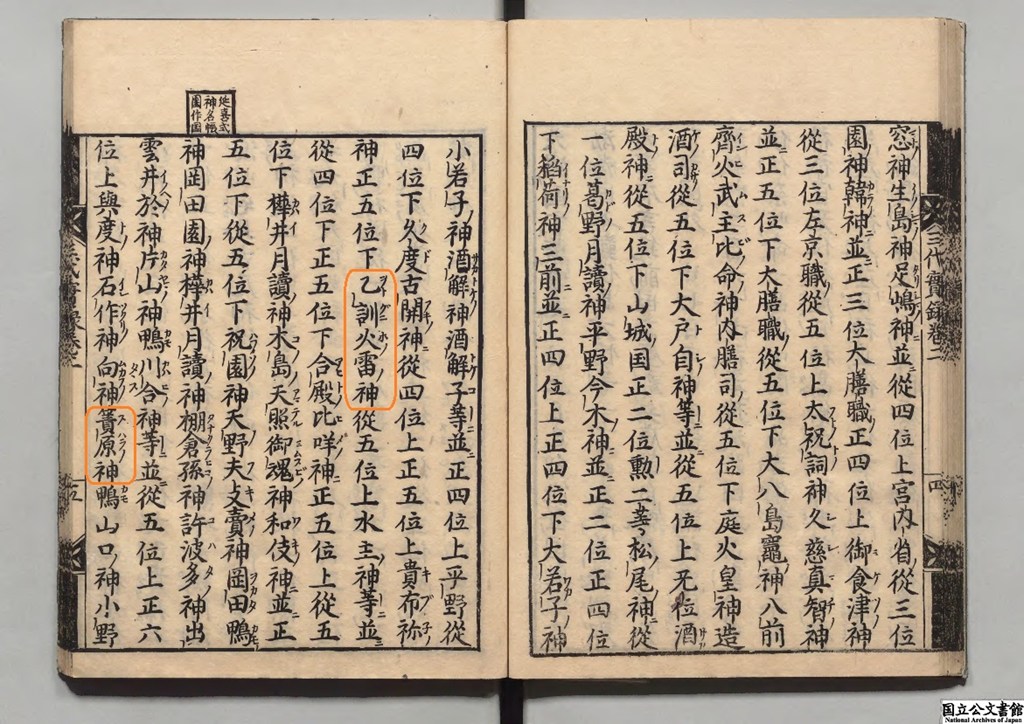 三代實録卷二
四
窓神生島神足嶋神並從四位上宮内省從三位
園神韓神並正三位大膳職正四位上御食津神
從三位左京職從五位上太祝詞神久慈真智神
並正五位下大膳職從五位下大八島竈神八前
齊火武主比命神内膳司從五位下庭火皇神造
酒司從五位下大戸自神等並從五位上无位酒
殿神從五位下山城国正二位勲二等松尾神從
一位葛野月讀神平野今木神並正二位正四位
下稻荷神三前並正四位上正四位下大若子神
小若子神酒解神酒解子等並正四位上平野從
四位下久度古開神從四位上正五位上貴布祢
神正五位下乙訓火雷神從五位上水主神等並
從四位下正五位下合殿比咩神正五位上從五
位下樺井月讀神木島天照御魂神和伎神並正
五位下從五位下祝園神天野夫支賣神岡田鴨
延喜式
神名帳
園作国
神岡田園神樺井月讀神棚倉孫神許波多神出
雲井於神片山神鴨川合神等並從五位上正六
位上與度神石作神向神簀原神鴨山口神小野
国立公文書館
National Archives of Japan